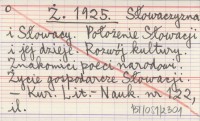 Ż. 1925. Słowaczyzna
i Słowacy. Położenie Słowacji
i jej dzieje. Rozwój kultury.
Znakomici poeci narodowi.
Życie gospodarcze Słowacji.
– Kur. Lit.-Nauk. nr 122,
il.